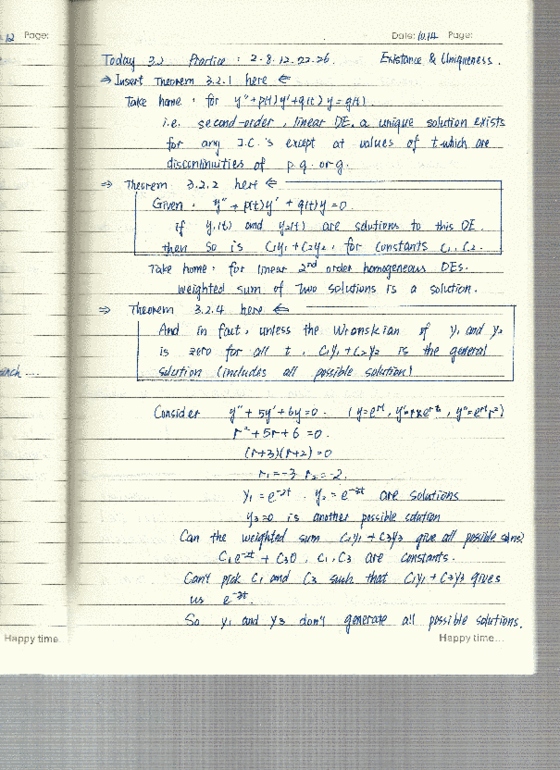 12 Page:
Date: 10.14 Page:
Today 3.2 Practice : 2. 8. 12. 22. 26. Existance & Uniqueness.
⇒ Insert Theorem 3.2.1 here ⇐
Take home : for y"+p(t)y'+q(t)y=g(t).
i.e. second-order, linear DE. a unique solution exists
for any I.C.'s except at values of t which are
discontinuities of p q. or g.
⇒ Theorem 3.2.2 here ⇐
Given : y"+p(t)y'+q(t)y=0.
if y₁(t) and y₂(t) are solutions to this DE
then so is C₁y₁+C₂y₂, for constants C₁, C₂.
Take home : for linear 2nd order homogeneous DEs.
weighted sum of Two solutions is a solution.
⇒ Theorem 3.2.4 here ⇐
And in fact, unless the Wronskian of y₁ and y₂
is zero for all t, C₁y₁+C₂y₂ is the general
solution (includes all possible solution)
Consider y"+5y'+6y=0.
r²+5r+6=0.
(r+3)(r+2)=0
r₁=-3 r₂=-2.
are solutions
y₃=0 is another possible solution
Can the weighted sum C₁y₁+C₃y₃ give all possible solns?
C₃0, C₁, C₃ are constants.
Can't pick C₁ and C₃ such that C₁y₁+C₃y₃ gives
us
So y₁ and y₃ don't generate all possible solutions.
Happy time.
Happy time...